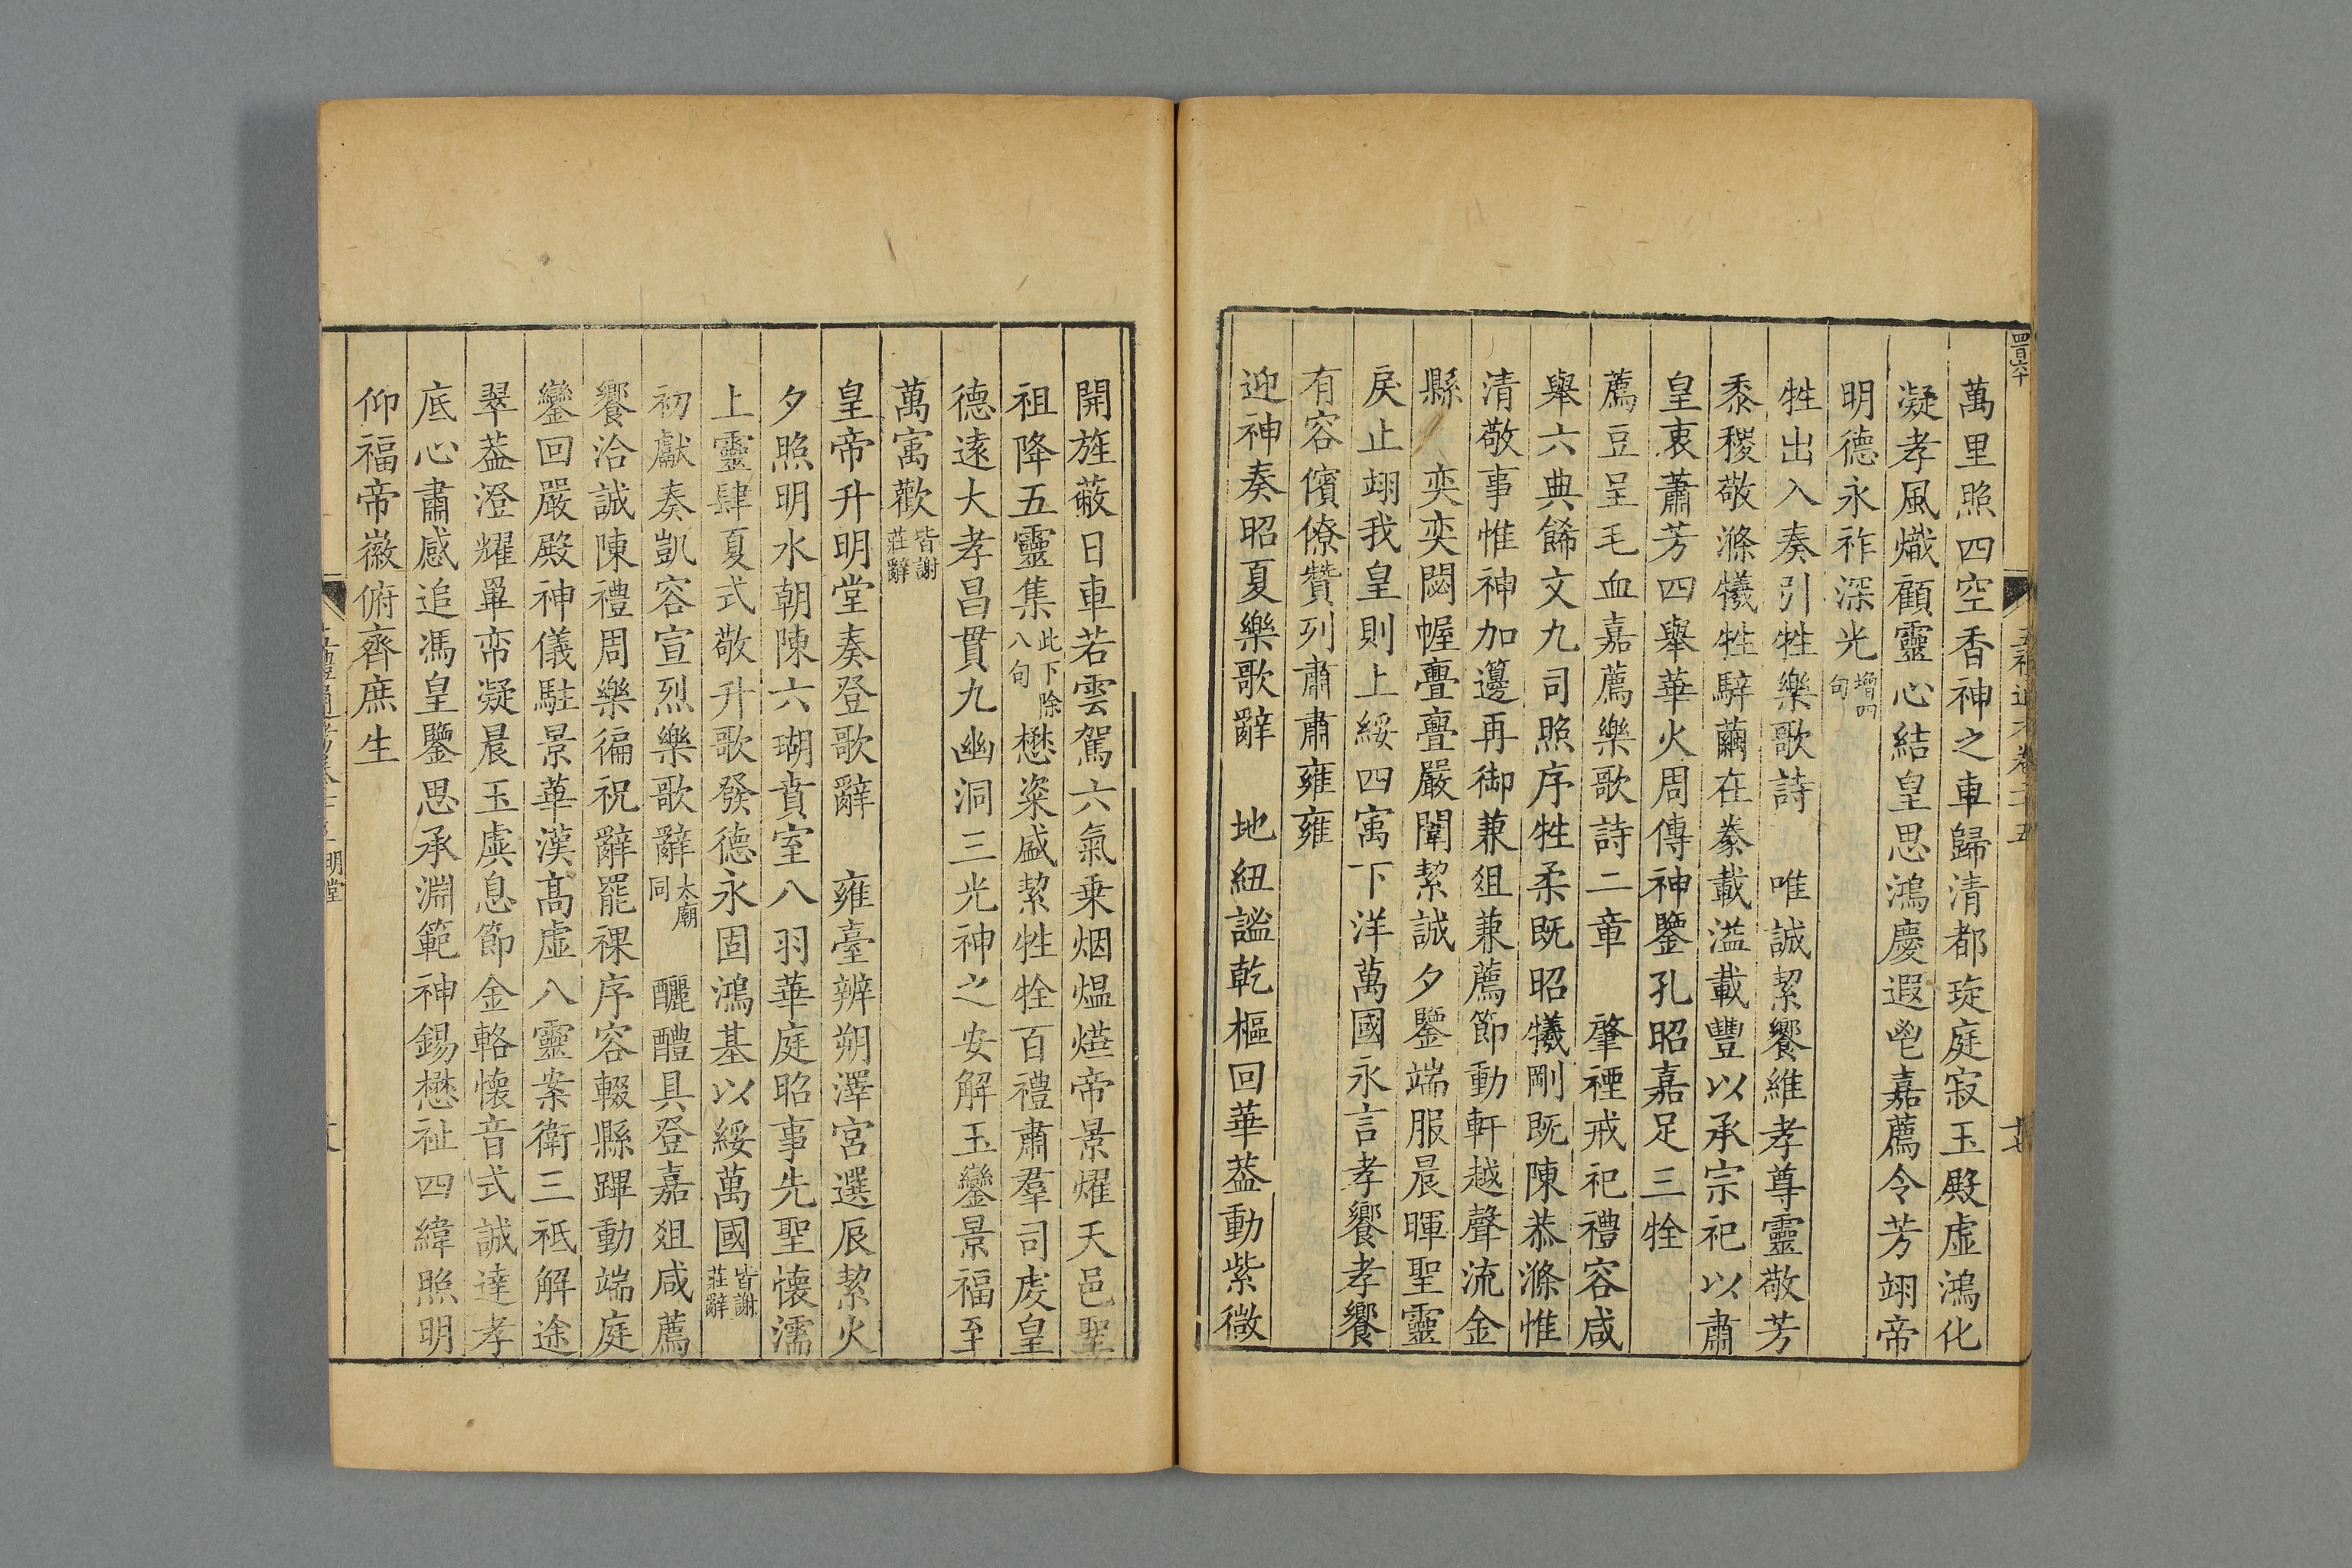 萬里照四空香神之車歸清都琁庭寂玉殿虛鴻化
凝孝風熾顧靈心結皇思鴻慶遐鬯嘉薦令芳翊帝
明德永祚深光增四句
牲出入奏引牲樂歌詩　唯誠絜饗維孝尊靈敬芳
黍稷敬滌犧牲騂繭在豢載溢載豐以承宗祀以肅
皇衷蕭芳四舉華火周傳神鑒孔昭嘉足三牷
薦豆呈毛血嘉薦樂歌詩二章　肇禋戒祀禮容咸
舉六典餙文九司照序牲柔既昭犧剛既陳恭滌惟
清敬事惟神加籩再御兼俎兼薦節動軒越聲流金
縣　奕奕閟幄亹亹嚴闈絜誠夕鑒端服晨暉聖靈
戾止翊我皇則上綏四㝢下洋萬國永言孝饗孝饗
有容儐僚贊列肅肅雍雍
迎神奏昭夏樂歌辭　地紐謐乾樞回華葢動紫微
開旌蔽日車若雲駕六氣乗烟熅燁帝景燿天邑聖
祖降五靈集此下除八句懋粢盛絜牲牷百禮肅羣司虔皇
德遠大孝昌貫九幽洞三光神之安解玉鑾景福至
萬㝢歡皆謝莊辭
皇帝升明堂奏登歌辭　雍臺辨朔澤宮選辰絜火
夕照明水朝陳六瑚賁室八羽華庭昭事先聖懷濡
上靈肆夏式敬升歌發德永固鴻基以綏萬國皆謝莊辭
初獻奏凱容宣烈樂歌辭太廟同　釃醴具登嘉爼咸薦
饗洽誠陳禮周樂徧祝辭罷祼序容輟縣蹕動端庭
鑾回嚴殿神儀駐景華漢高虛八靈案衛三祇解途
翠葢澄耀罼帟凝晨玉鑣息節金輅懷音式誠達孝
底心肅感追馮皇鑒思承淵範神錫懋祉四緯照明
仰福帝徽俯齊庶生